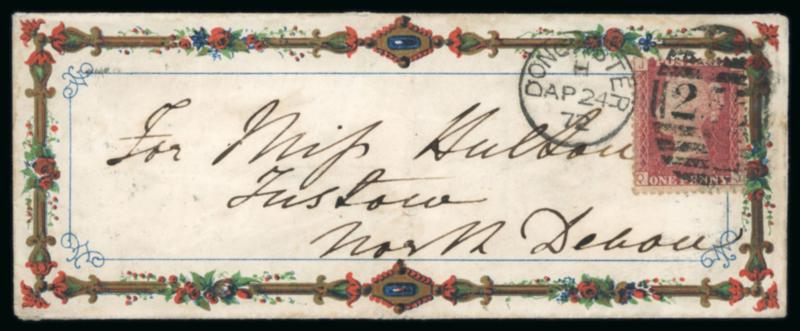 For Miss Hulton
Instow
North Devon
DONCASTER
I
AP 24
72
2
ONE PENNY
Q